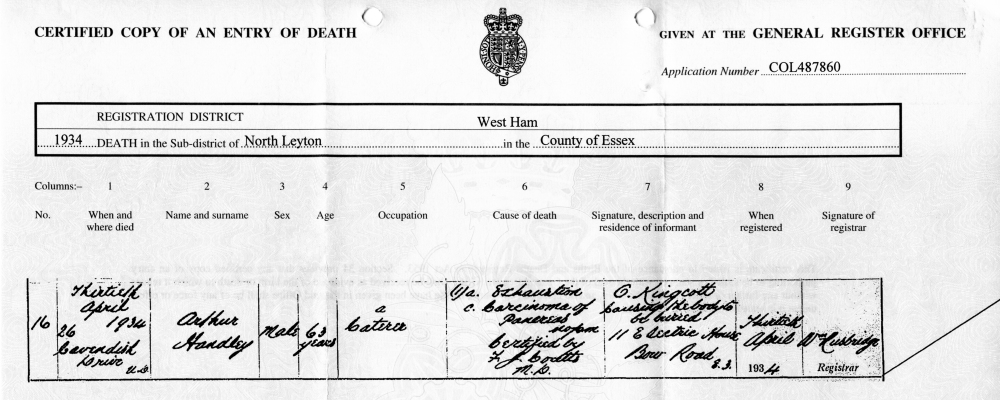 CERTIFIED COPY OF AN ENTRY OF DEATH
GIVEN AT THE GENERAL REGISTER OFFICE
Application Number COL487860
REGISTRATION DISTRICT
West Ham
1934 DEATH in the Sub-district of North Leyton in the County of Essex
Columns:– 1 2 3 4 5 6 7 8 9
No. When and Name and surname Sex Age Occupation Cause of death Signature, description and When Signature of
where died residence of informant registered registrar
16
Thirtieth
April
1934
26
Cavendish
Drive
U.D.
Arthur
Handley
Male
63
years
a
Caterer
(1)a. Exhaustion
c. Carcinoma of
Pancreas
no pm
Certified by
F. J. Coutts
M.D.
O. Kingcott
Causing the body to
be buried
11 Electric House
Bow Road
E.3.
Thirtieth
April
1934
Registrar